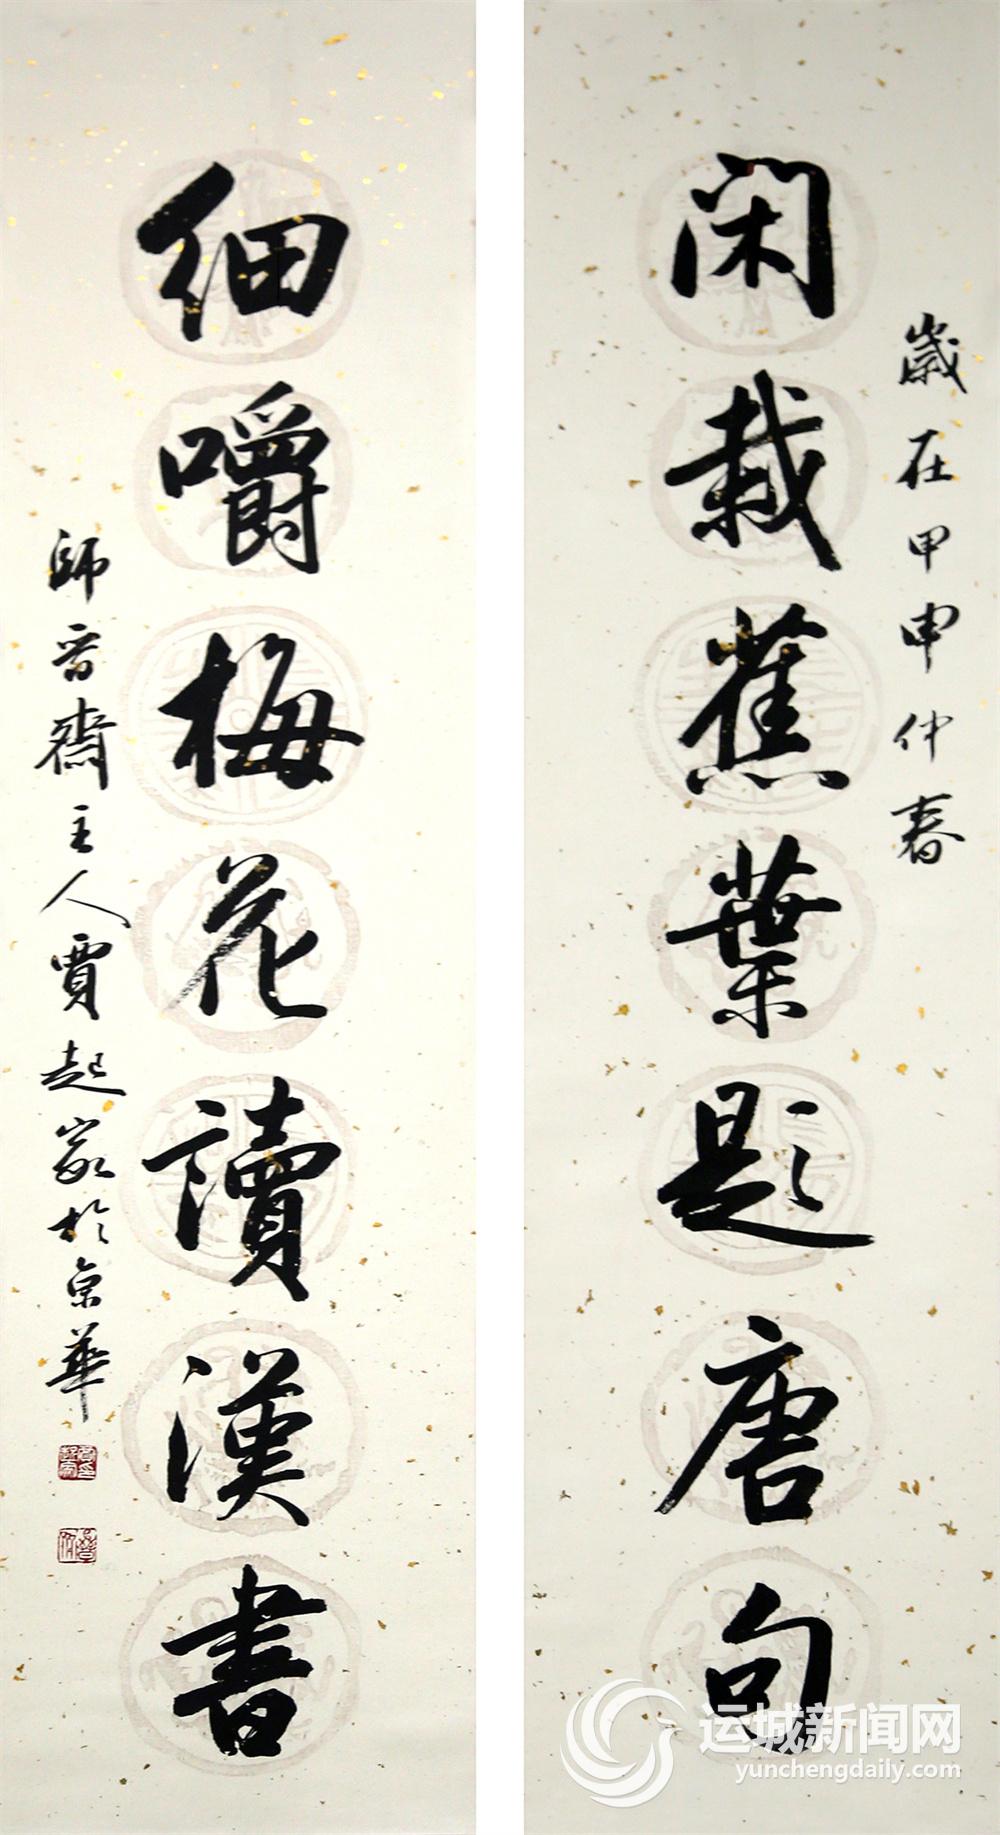 歲在甲申仲春
闲栽蕉葉題唐句
细嚼梅花讀漢書
師晋齋主人賈起家於京華
运城新闻网
yunchengdaily.com